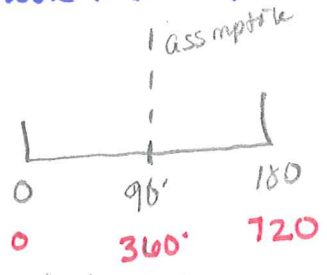 assmptile
0 90° 180
0 360° 720